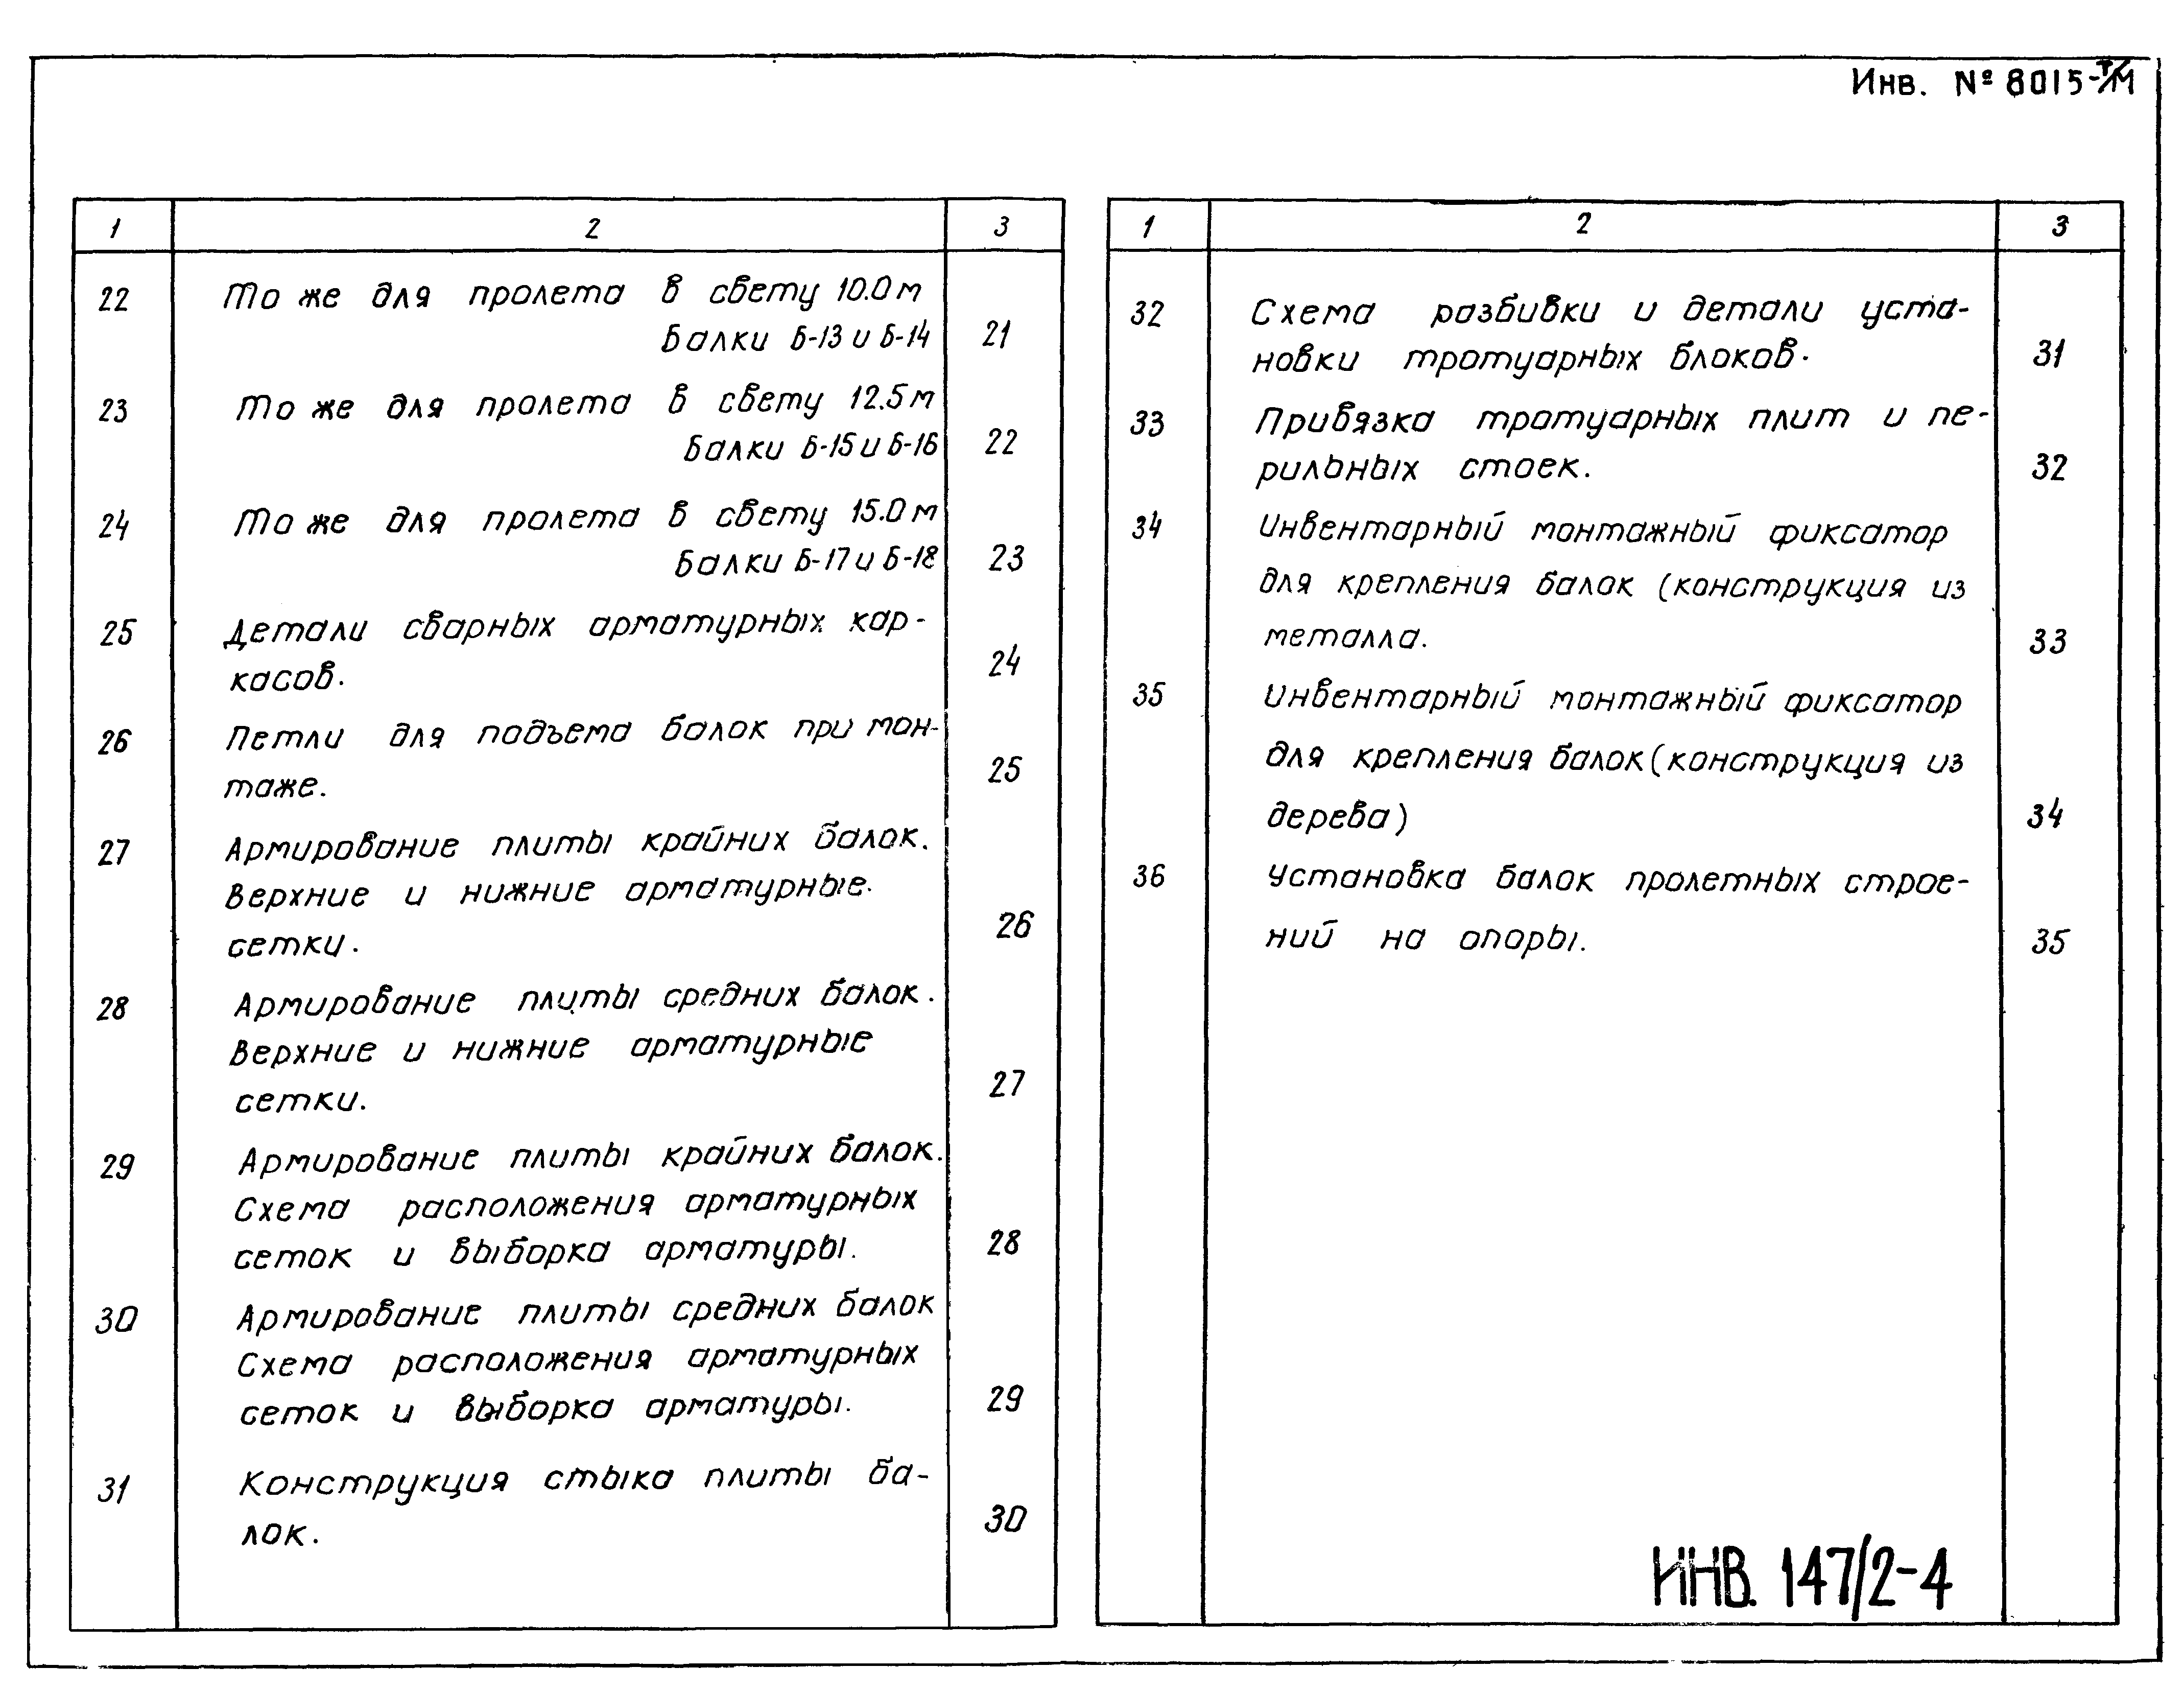 Инв. № 8015-т/м
1 2 3
22 То же для пролета в свету 10.0 м
Балки Б-13 и Б-14 21
23 То же для пролета в свету 12.5 м
Балки Б-15 и Б-16 22
24 То же для пролета в свету 15.0 м
Балки Б-17 и Б-18 23
25 Детали сварных арматурных кар-
касов. 24
26 Петли для подъема балок при мон-
таже. 25
27 Армирование плиты крайних балок.
Верхние и нижние арматурные
сетки. 26
28 Армирование плиты средних балок.
Верхние и нижние арматурные
сетки. 27
29 Армирование плиты крайних балок.
Схема расположения арматурных
сеток и выборка арматуры. 28
30 Армирование плиты средних балок
Схема расположения арматурных
сеток и выборка арматуры. 29
31 Конструкция стыка плиты ба-
лок. 30
1 2 3
32 Схема разбивки и детали уста-
новки тротуарных блоков. 31
33 Привязка тротуарных плит и пе-
рильных стоек. 32
34 Инвентарный монтажный фиксатор
для крепления балок (конструкция из
металла. 33
35 Инвентарный монтажный фиксатор
для крепления балок (конструкция из
дерева) 34
36 Установка балок пролетных строе-
ний на опоры. 35
ИНВ. 147/2-4